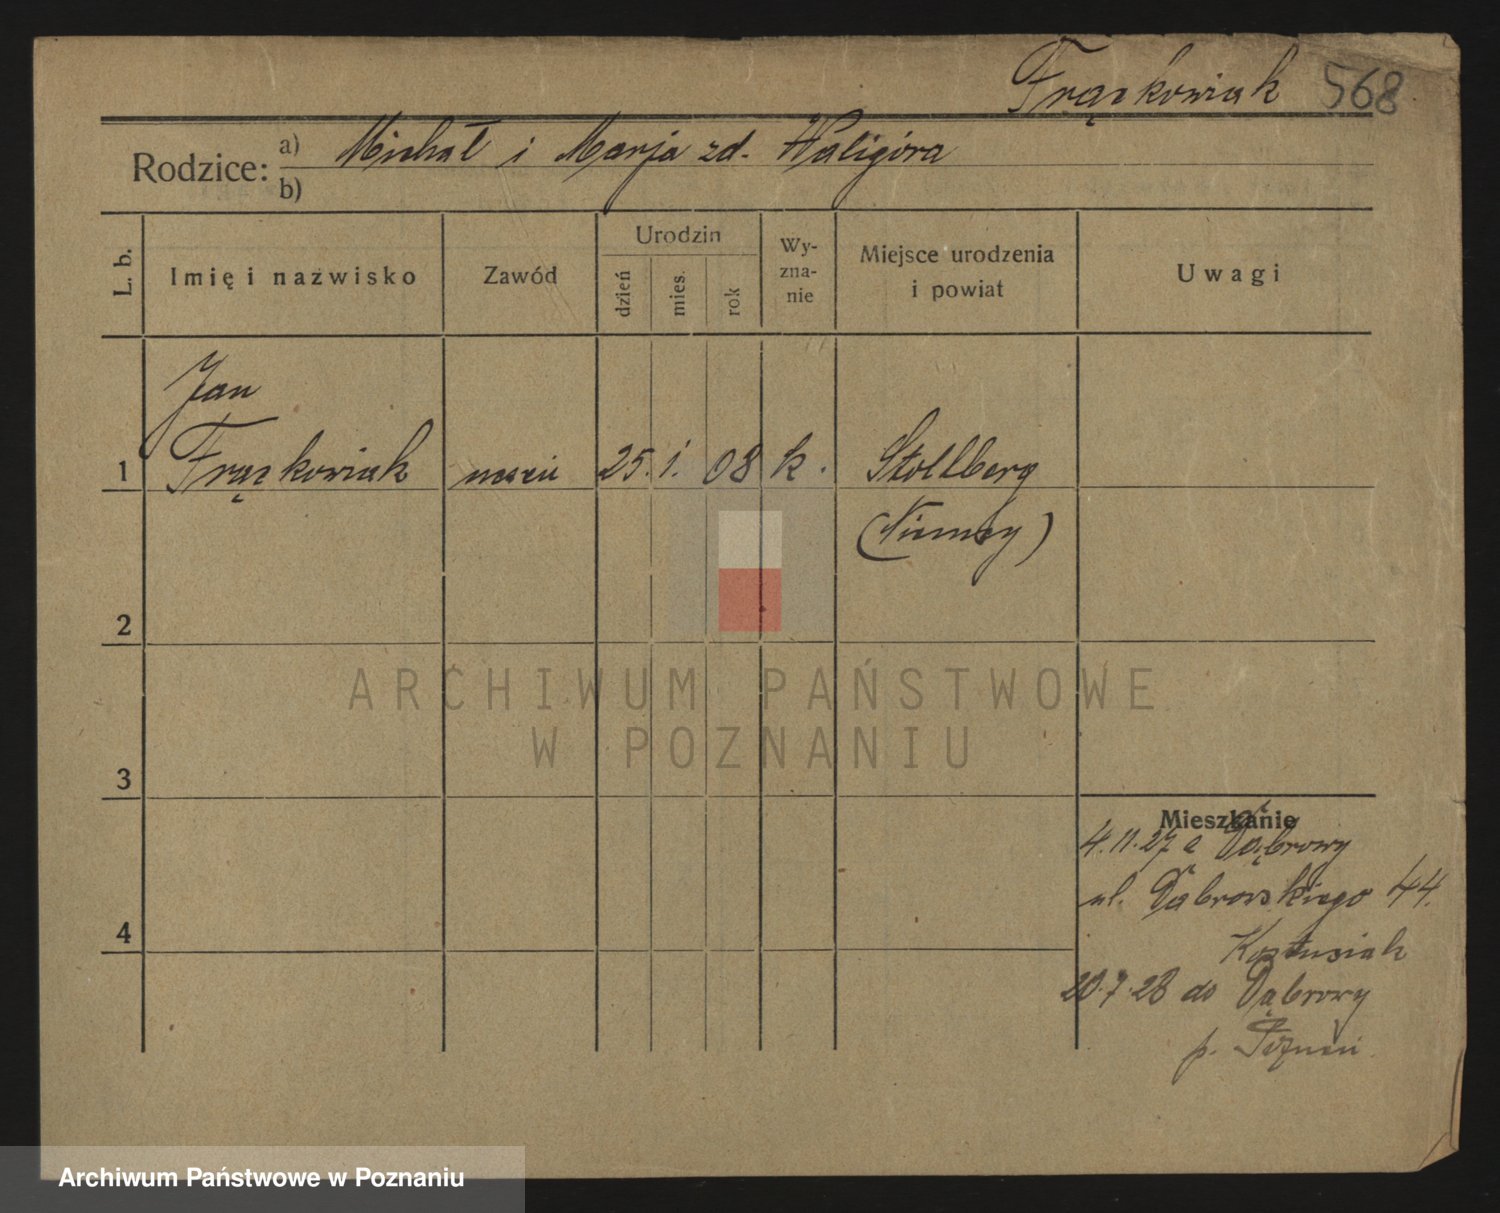 Frąckowiak 568
Rodzice: a) Michał i Marja zd. Waligóra
b)
L. b.
Imię i nazwisko
Zawód
Urodzin
dzień
mies.
rok
Wy-
zna-
nie
Miejsce urodzenia
i powiat
Uwagi
Jan
1 Frąckowiak uczeń 25. 1. 08 k. Stollberg
(Niemcy)
2
ARCHIWUM PAŃSTWOWE
W POZNANIU
3
Mieszkanie
4.11.27 z Dąbrowy
ul. Dąbrowskiego 44.
4
20.7.28 do Dąbrowy
p. Poznań
Archiwum Państwowe w Poznaniu